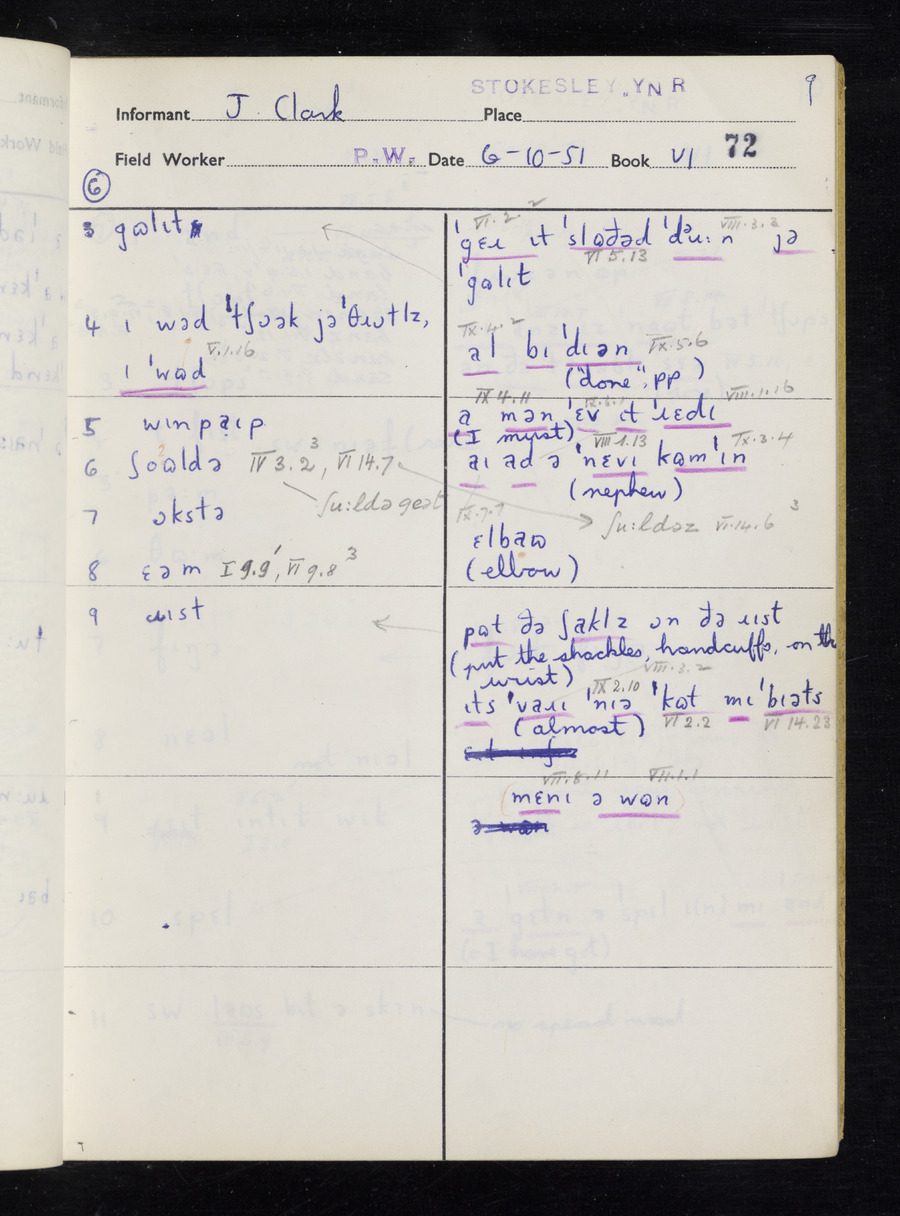 STOKESLEY, YNR
9
Informant J. Clark Place
Field Worker P.W. Date 6-10-51 Book VI 72
6
3 gɷlɪt
4 ɪ wəd ˈtʃʊək jəˈθɹɒtlz,
V.1.16
ɪ ˈwɷd
5 wɪnpaɪp
6 ʃoɷldə IV 3.2³, VI 14.7
ʃu:ldə geət
7 ɔkstə
8 ɛəm I 9.9', VI 9.8³
9 ɹɪst
VI.2² VIII.3.3
ˈgɛɪ ɪt ˈslɷðəd ˈdəu:n jə
VI 5.13
ˈgɷlɪt
IX.4.²
al bɪˈdɪən IX.5.6
("done", pp)
IX 4.11 VIII.1.16
a mən ˈɛv ɪt ˈɹɛdɪ
(I must) VIII 1.13 IX.3.4
aɪ ad ə ˈnɛvɪ kɷmˈɪn
(nephew)
IX.7.7
ʃu:ldəz VI.14.6³
ɛlbaɷ
(elbow)
pɷt ðə ʃaklz ɔn ðə ɹɪst
(put the shackles, handcuffs, on the
wrist) VIII.3.2
IX 2.10
ɪts ˈvaɹɪ ˈnɪə ˈkɷt mɪˈbɪəts
(almost) VI 2.2 VI 14.23
VII.8.11 VII.1.1
mɛnɪ ə wɷn